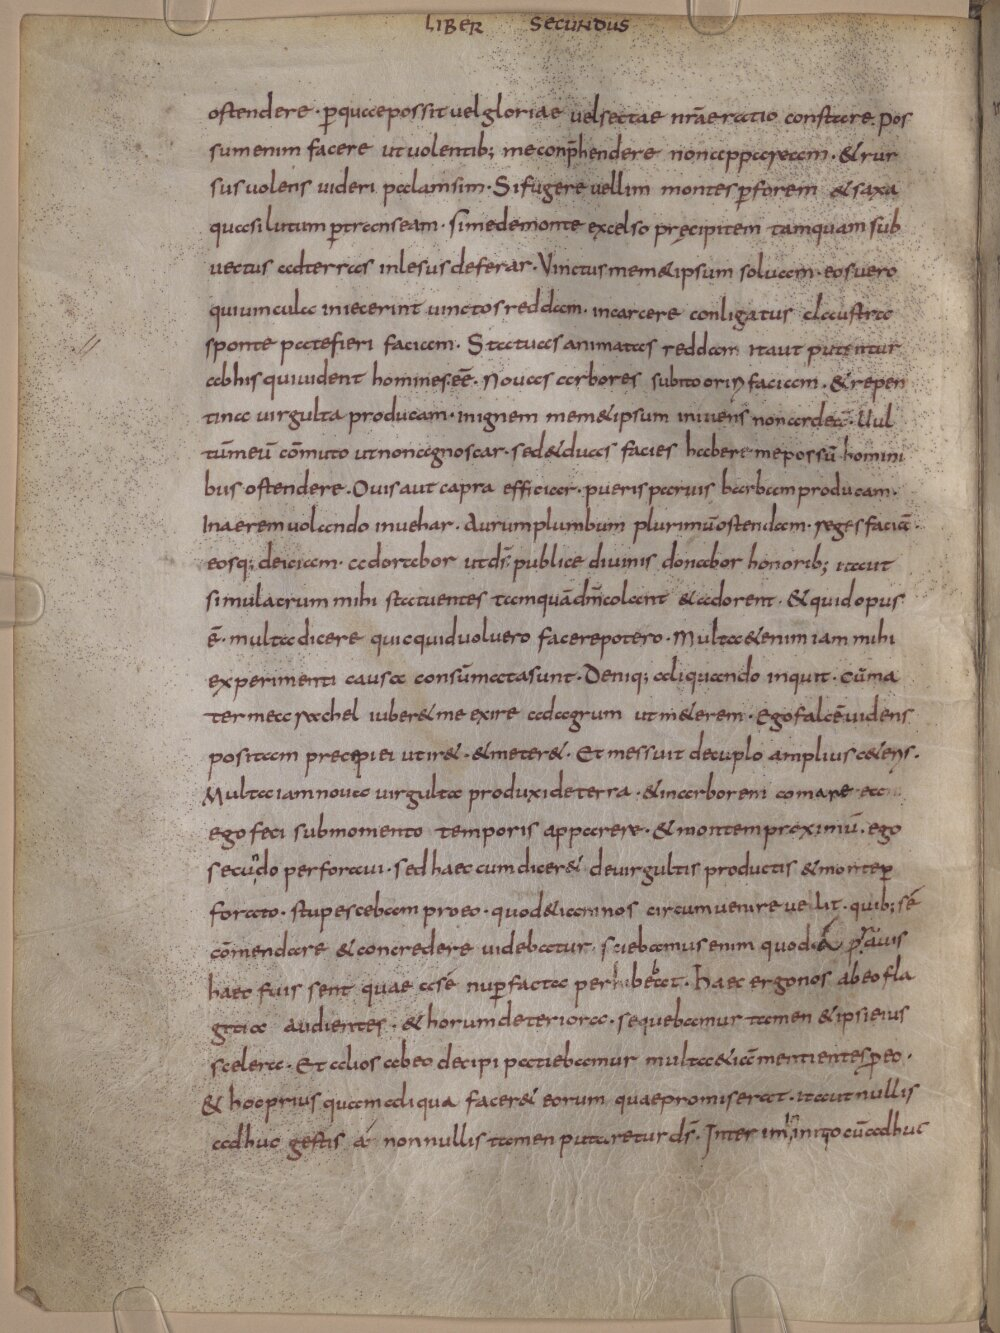 LIBER SECUNDUS
ostendere · p̄quae possit uel gloriae uel sectae nr̄ae ratio constare. Pos
sum enim facere ut uolentib; me conp̄hendere non appaream · & rur
sus uolens uideri palam sim · Si fugere uellim montes p̄forem & saxa
quasi lutum p̄transeam · si me de monte excelso precipitem tamquam sub
uectus ad terras inlesus deferar · Vinctus mem&ipsum soluam · eos uero
qui uincula iniecerint uinctos reddam · in carcere conligatus claustra
sponte patefieri faciam · Statuas animatas reddam ita ut putentur
ab his qui uident homines eē · Nouas arbores subito oriri faciam · & repen
tina uirgulta producam · in ignem mem&ipsum iniciens non ardeā · Uul
tūmeū cōmuto ut non agnoscar · sed & duas facies habere me possū homini
bus ostendere · Ouis aut capra efficiar · pueris paruis barbam producam ·
In aerem uolando inuehar · Aurum plumbum plurimū ostendam · reges faciā ·
eosq; deiciam · adorabor ut ds̄ publice diuinis donabor honorib; ita ut
simulacrum mihi statuentes tamquā dm̄ colant & adorent · & quid opus
ē · multa dicere quicquid uoluero facere potero · Multa & enim iam mihi
experimenti causa consūmata sunt · Deniq; aliquando inquit · cūma
ter mea rachel iuber& me exire ad agrum ut m&erem · Ego falcē uidens
positam precepi ei ut ir& · & meter& · Et messuit decuplo amplius c&eris ·
Multa iam noua uirgulta produxi de terra · & in arborem comare ea
ego feci sub momento temporis apparere · & montem proximū · ego
secundo perforaui · sed haec cum dicer& de uirgultis productis & monte p̄
forato · stupescebam pro eo · quod & iam nos circumuenire uellit · quib; sé
cōmendare & concredere uidebatur · sciebamus enim quod & p̄ auis
haec fuissent quae a se nup̄ facta perhibebat · haec ergo nos ab eo fla
gitia audientes · & horum deteriora · sequebamur tamen & ipsi eius
scelera · Et alios ab eo decipi patiebamur multa & iā mentientes p̄ eo ·
& hoc prius quam aliqua facer& eorum quae promiserat · ita ut nullis
adhuc gestis a non nullis tamen putaretur ds̄ · Inter initio cū adhuc